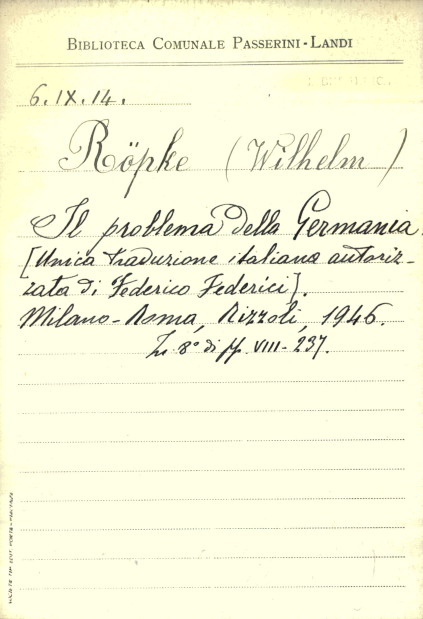 BIBLIOTECA COMUNALE PASSERINI-LANDI
6.IX.14.
Röpke (Wilhelm)
Il problema della Germania.
[Unica traduzione italiana autoriz-
zata di Federico Federici].
Milano-Roma, Rizzoli, 1946.
In 8° di pp. VIII-237.